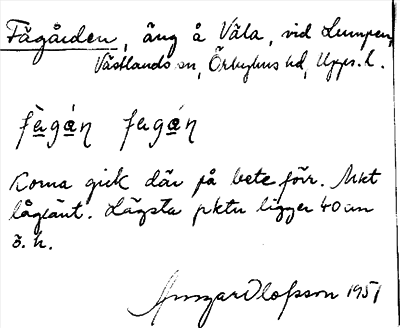 Fägården, äng å Väla, vid Lumpen,
Västlands sn, Örbyhus hd, Upps. l.
fägán fagán
Korna gick där på bete förr. Mkt
låglänt. Lägsta pktn ligger 40 cm
ö. h.
Ansgar Olofsson 1951